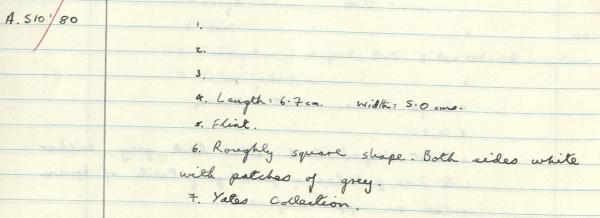 A. S10'/80
1.
2.
3.
4. Length: 6.7 cm. Width: 5.0 cms.
5. Flint.
6. Roughly square shape. Both sides white
with patches of grey.
7. Yates Collection.